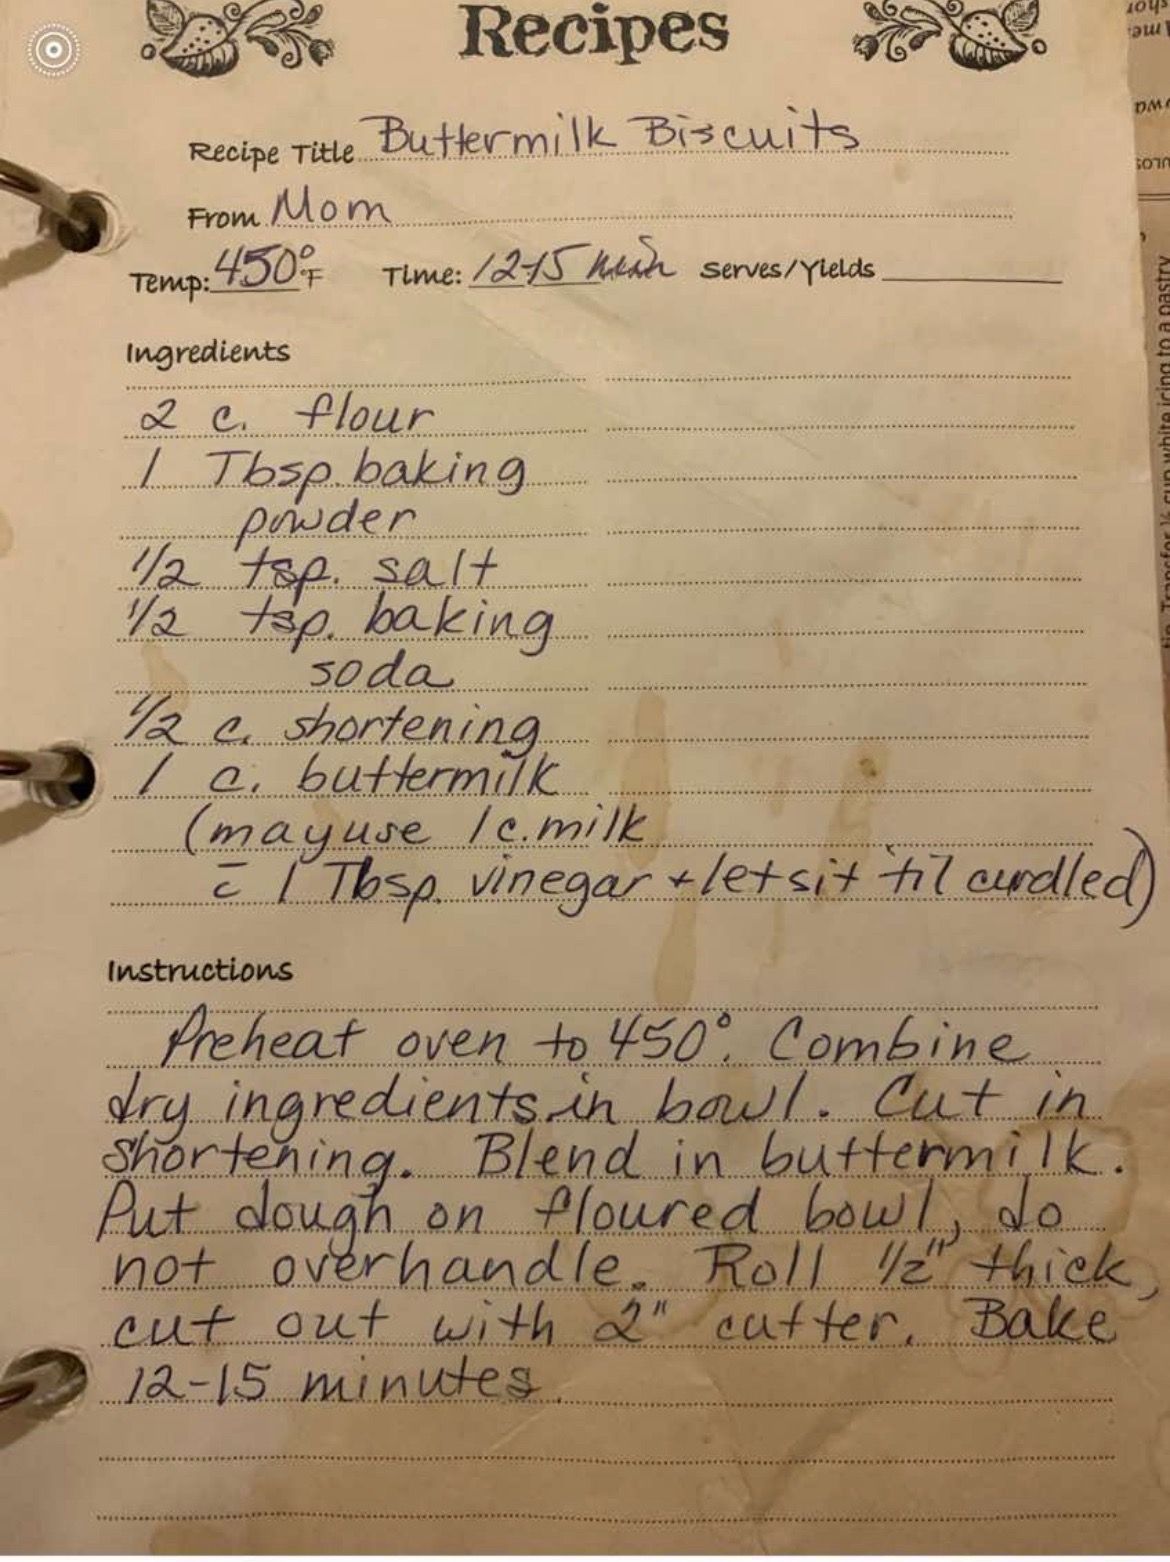 Recipes
Recipe Title Buttermilk Biscuits
From Mom
Temp: 450°F Time: 12-15 min Serves/Yields
Ingredients
2 c. flour
1 Tbsp. baking
powder
1/2 tsp. salt
1/2 tsp. baking
soda
1/2 c. shortening
1 c. buttermilk
(may use 1 c. milk
c̄ 1 Tbsp. vinegar + let sit 'til curdled)
Instructions
Preheat oven to 450°. Combine
dry ingredients in bowl. Cut in
shortening. Blend in buttermilk.
Put dough on floured bowl, do
not overhandle. Roll 1/2" thick,
cut out with 2" cutter. Bake
12-15 minutes.
cup white icing to a pastry